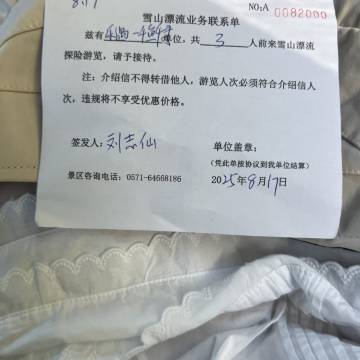 8.17
雪山漂流业务联系单
NO:A 0082000
兹有 单位，共 3 人前来雪山漂流
探险游览，请予接待。
注：介绍信不得转借他人，游览人次必须符合介绍信人
次，违规将不享受优惠价格。
签发人：刘志仙
单位盖章：
（凭此单按协议到我单位结算）
景区咨询电话：0571-64668186
2025年8月17日